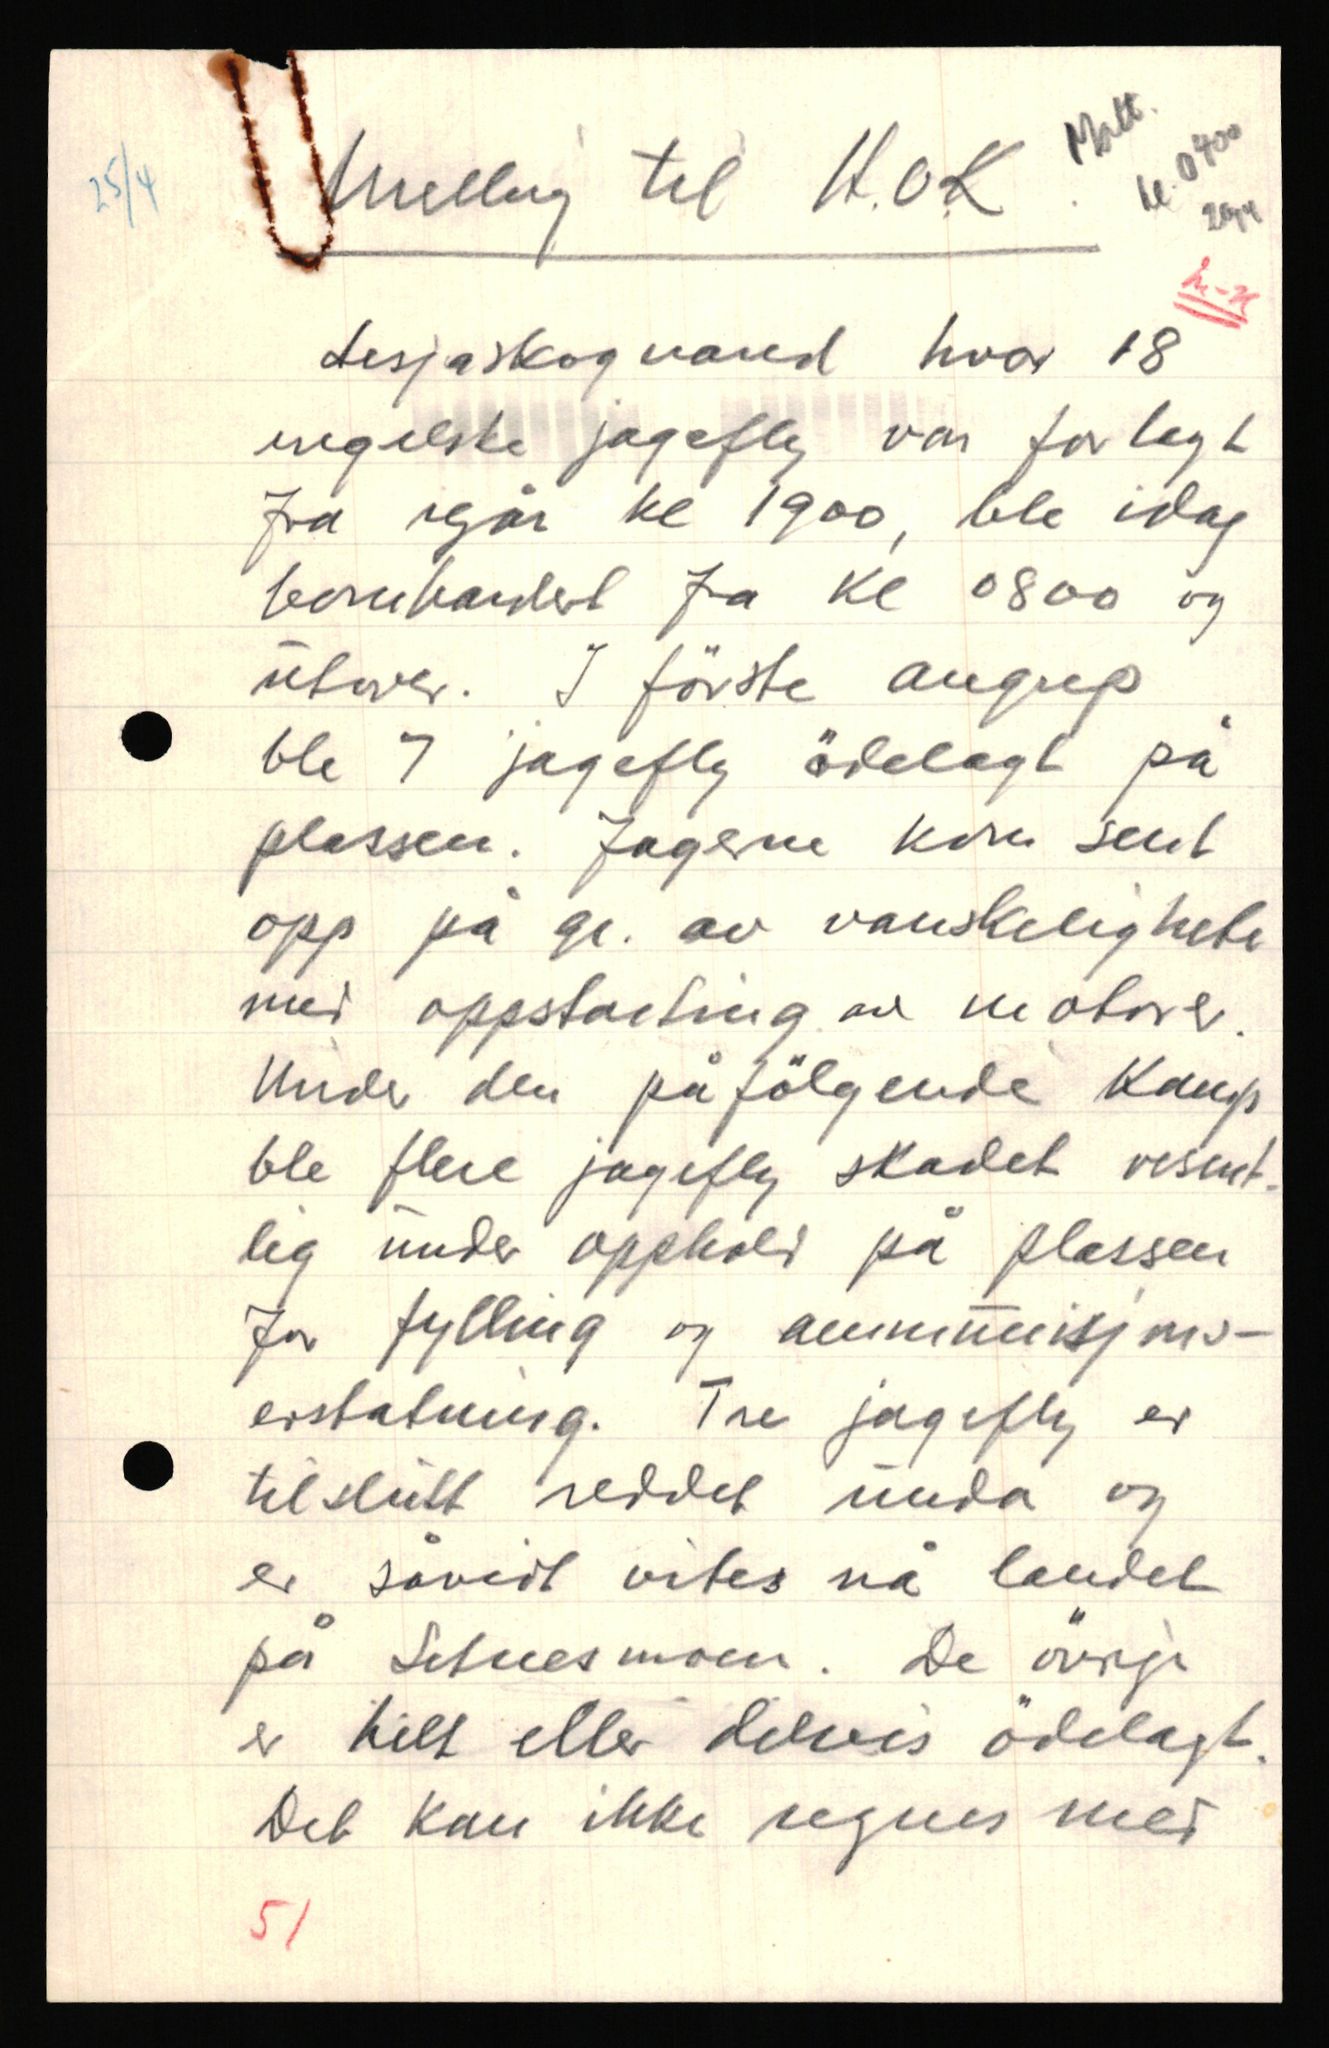 25/4
Melding til H.O.K.
Mott.
kl. 0400
Lesjaskogvand hvor 18
engelske jagefly var forlagt
fra igår kl 1900, ble idag
bombardert fra kl 0800 og
utover. I förste angrep
ble 7 jagefly ödelagt på
plassen. Jagerne kom sent
opp på gr. av vanskeligheter
med oppstarting av motorer.
Under den påfölgende kamp
ble flere jagefly skadet vesent-
lig under opphold på plassen
for fylling og ammunisjons-
erstatning. Tre jagefly er
tilslutt reddet unda og
er såvidt vites nå landet
på Setnesmoen. De övrige
er helt eller delvis ödelagt.
Det kan ikke regnes med
51